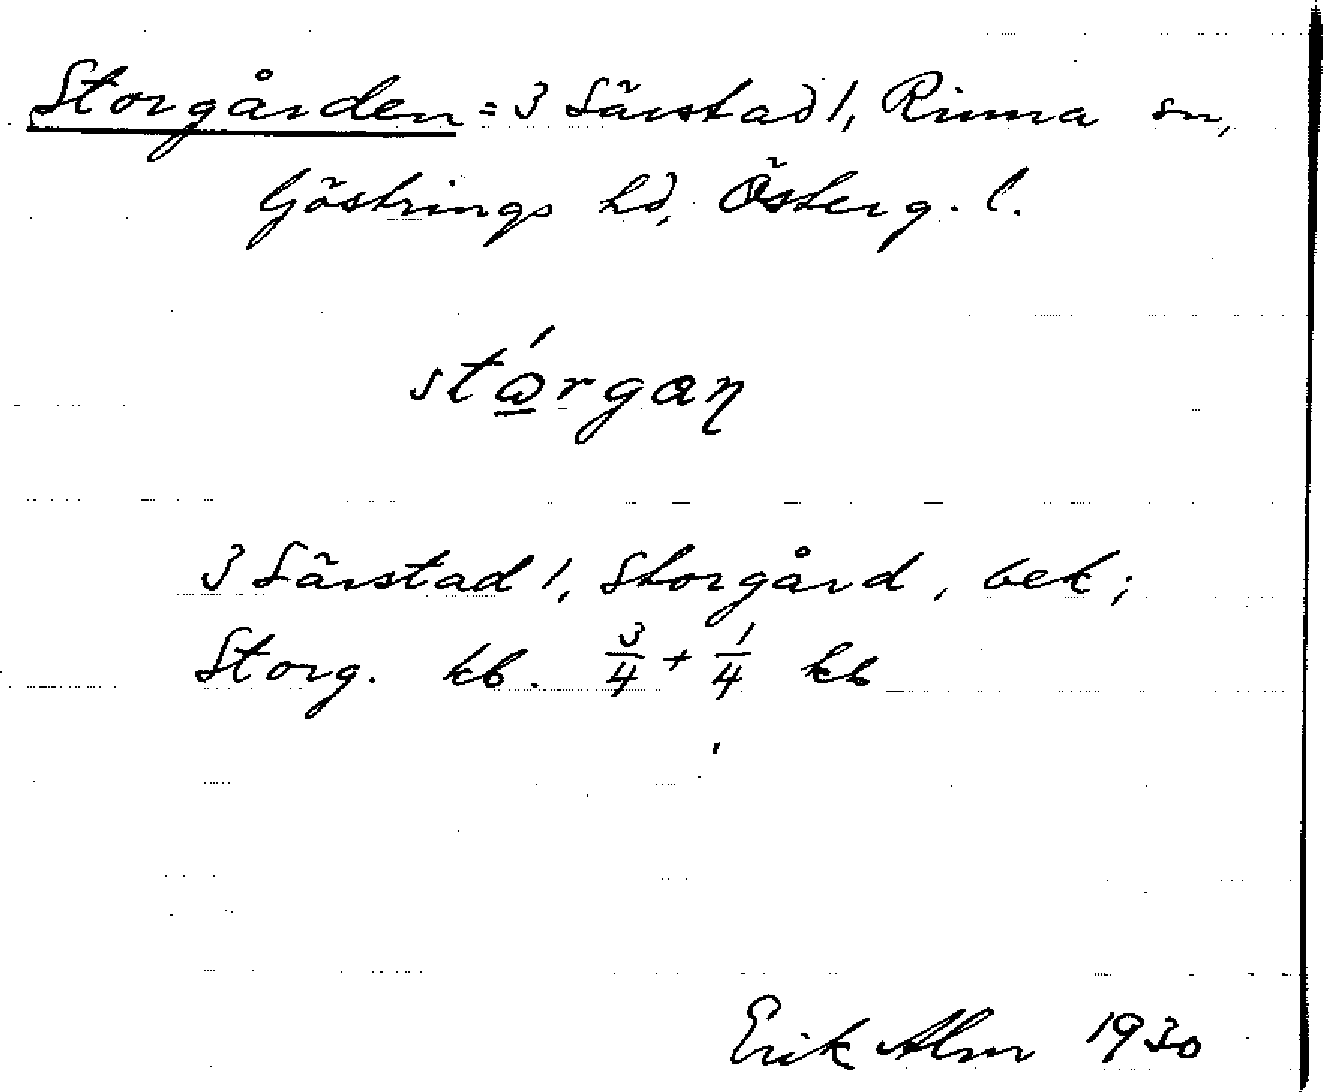 Storgården = 3 Särstad 1, Rinna sn,
Göstrings hd, Österg. l.
stǫ́rgaɳ
3 Särstad 1, Storgård, bek;
Storg. kb. 3/4 + 1/4 kb
Erik Alm 1930